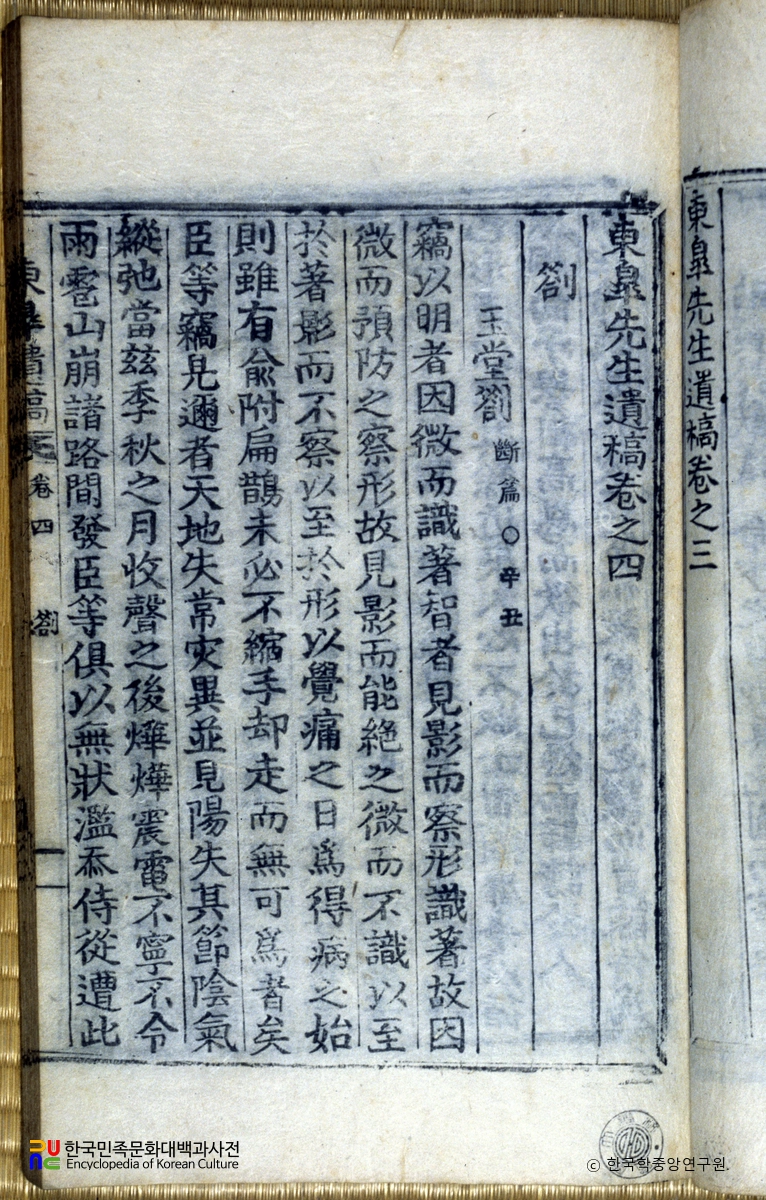 東皐先生遺稿卷之三
東皐先生遺稿卷之四
劄
玉堂劄 斷篇○辛丑
竊以明者因微而識著智者見影而察形識著故因
微而預防之察形故見影而能絶之微而不識以至
於著影而不察以至於形以覺痛之日爲得病之始
則雖有兪附扁鵲未必不縮手却走而無可爲者矣
臣等竊見邇者天地失常灾異並見陽失其節陰氣
縱弛當玆季秋之月收聲之後燁燁震電不寧不令
雨雹山崩諸路間發臣等俱以無狀濫忝侍從遭此
東皐遺稿 卷四 劄
한국민족문화대백과사전
Encyclopedia of Korean Culture
© 한국학중앙연구원.